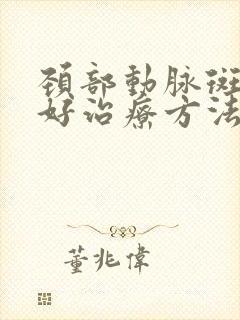 頚部動脉斑
好治療方法
董兆偉